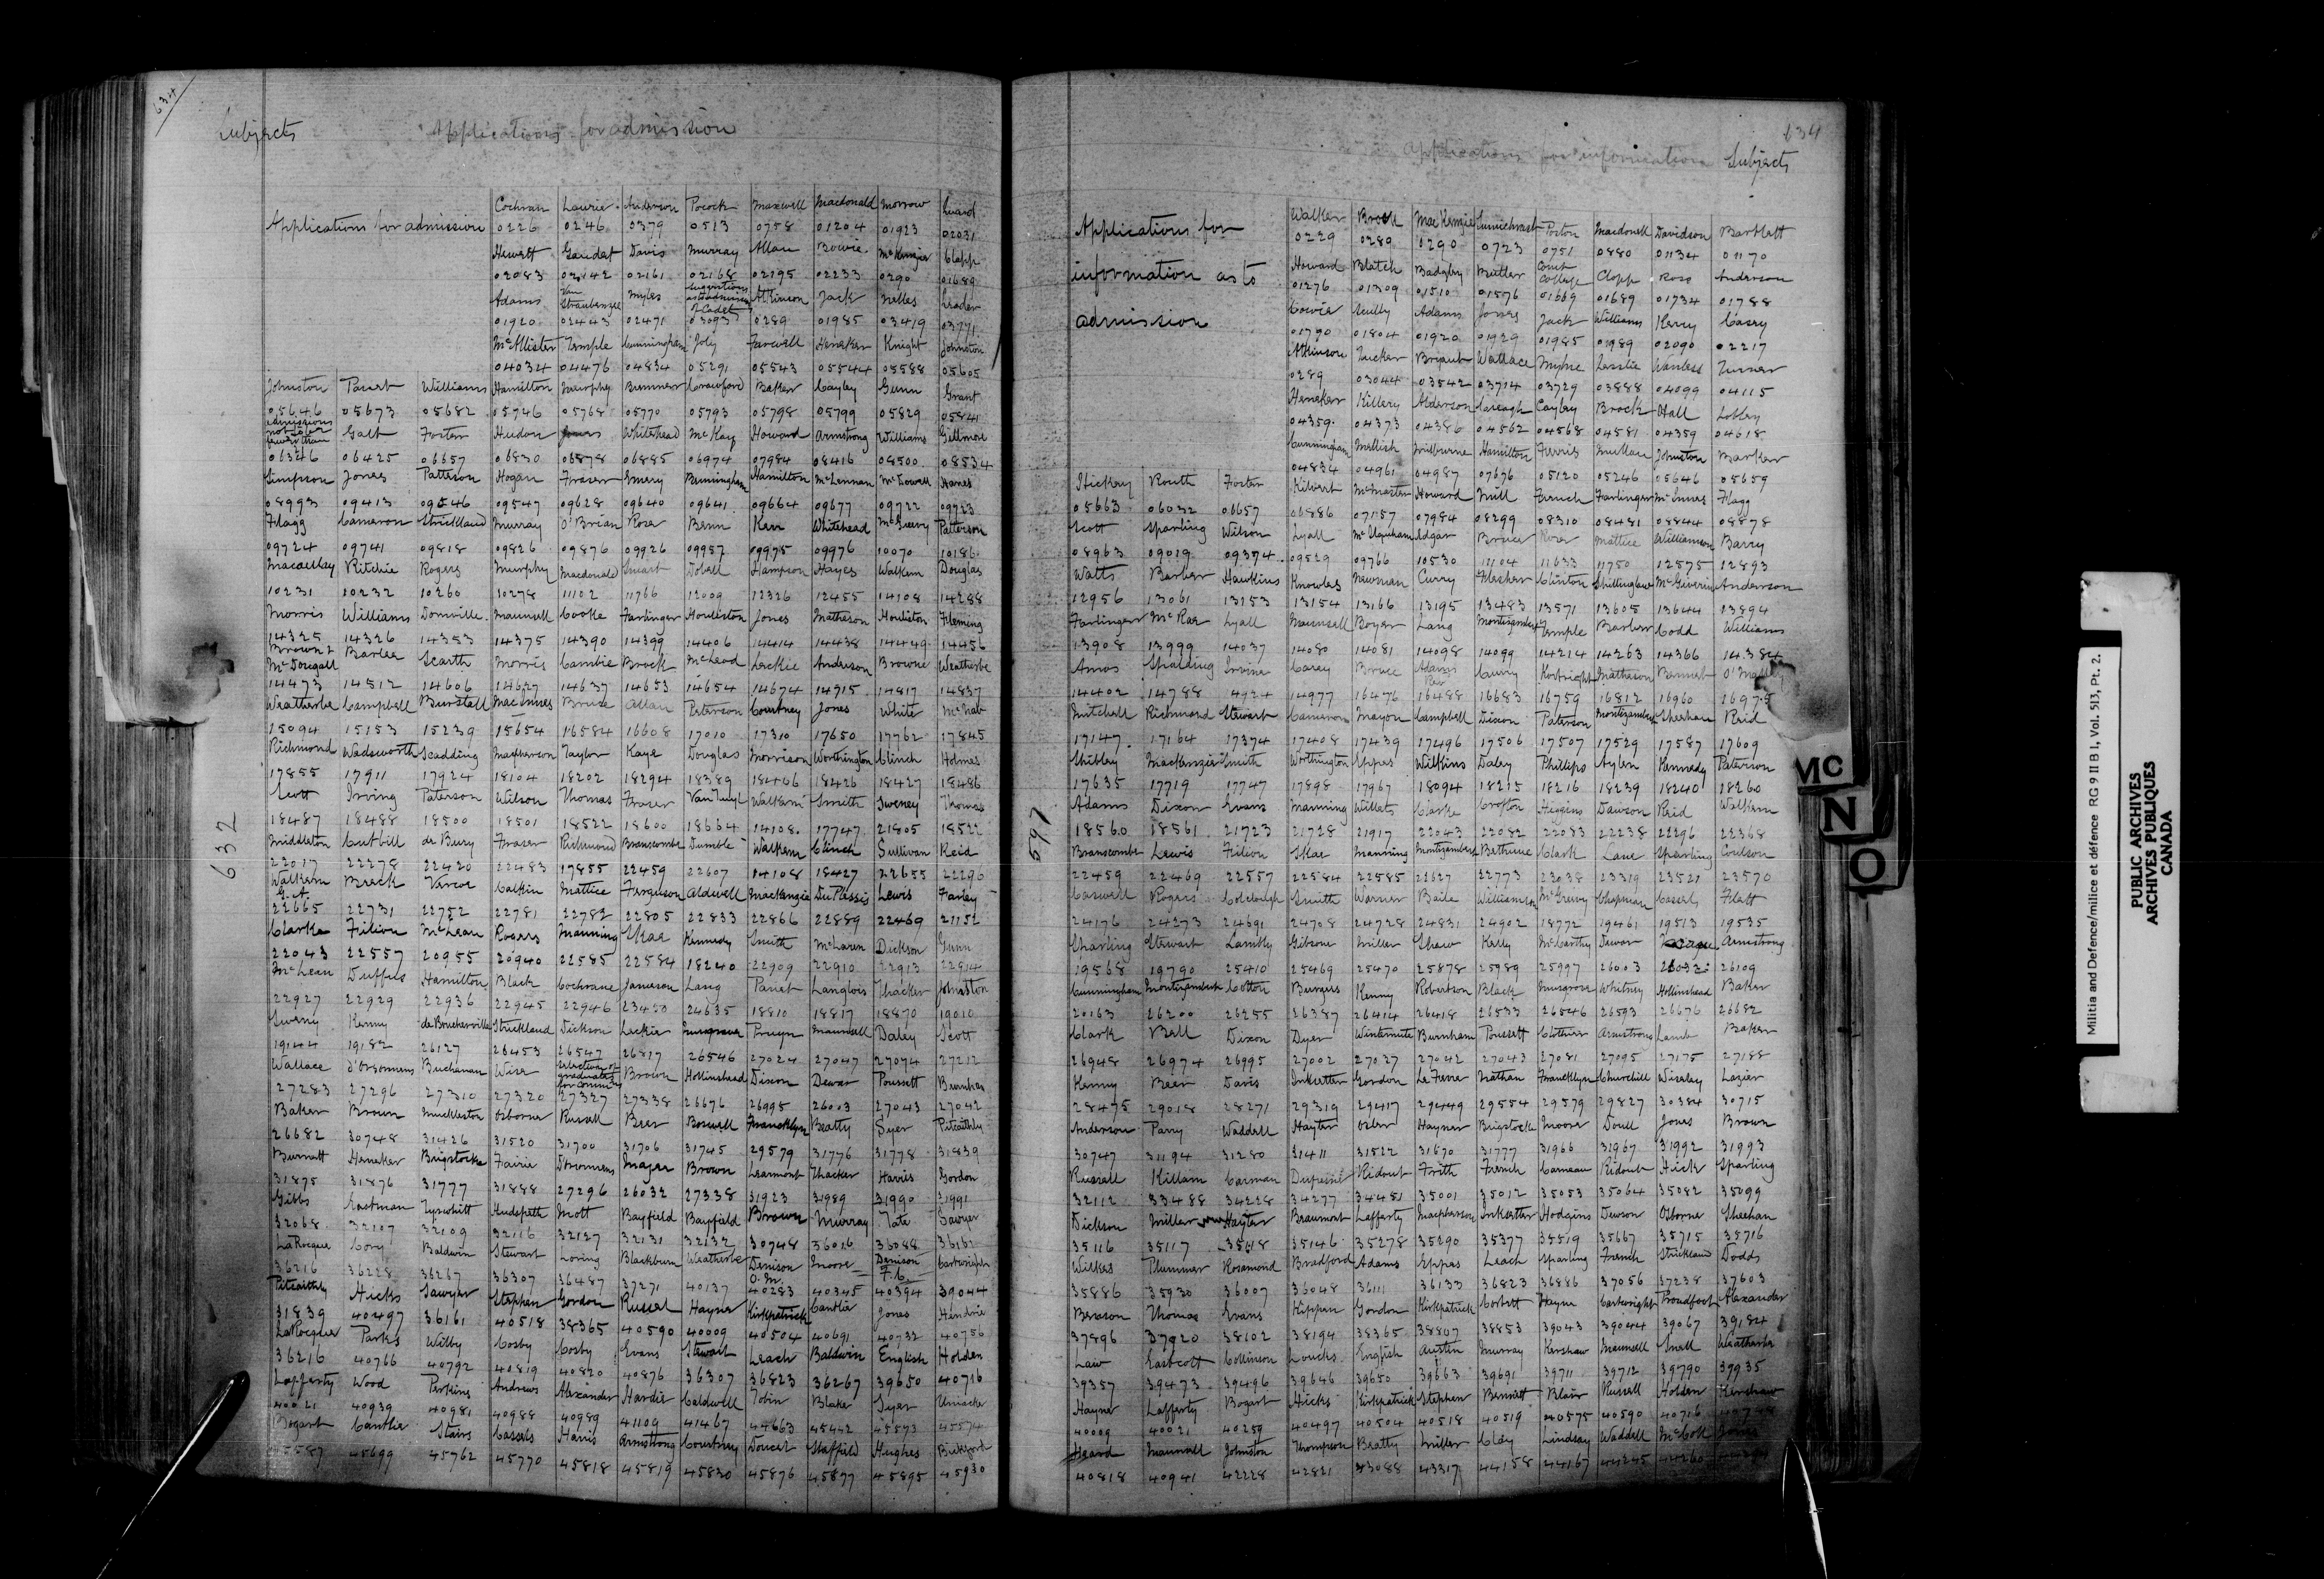 634
Subjects Applications for admission
Cochran Laurie Anderson Pocock Maxwell Macdonald Morrow Luard
Applications for admission 0226 0246 0379 0513 0758 01204 01923 02031
Hewett Gaudet Davis Murray Allan Bowie McKenzie Clapp
02083 02142 02161 02168 02195 02233 0290 01689
Adams Van Straubenzee Myles Suggestions as to admission of Cadets Atkinson Jack Nelles Leader
01920 02443 02471 03093 0289 01985 03419 03771
McAllister Temple Cunningham Joly Farwell Heneker Knight Johnston
04034 04476 04834 05291 05543 05544 05588 05605
Johnston Panet Williams Hamilton Murphy Bremner Crawford Baker Cayley Gunn Grant
05646 05673 05682 05746 05768 05770 05793 05798 05799 05829 05841
Galt Foster Hudon Jones Whitehead McKay Howard Armstrong Williams Gillmore
06346 06425 06657 06830 06878 06885 06974 07984 08416 08500 08534
Simpson Jones Patterson Hogan Fraser Emery Benningham Hamilton McLennan McDowell Hanes
08993 09413 09546 09547 09628 09640 09641 09664 09677 09722 09723
Flagg Cameron Strickland Murray O'Brian Rose Benn Kerr Whitehead McGreevy Patterson
09724 09741 09818 09826 09876 09926 09957 09975 09976 10070 10186
Macaulay Ritchie Rogers Murphy Macdonald Smart Dobell Hampson Hayes Walkem Douglas
10231 10232 10260 10278 11102 11766 12009 12326 12455 14108 14288
Morris Williams Domville Maunsell Cooke Farlinger Houliston Jones Matheson Houliston Fleming
14325 14326 14353 14375 14390 14399 14406 14414 14438 14449 14456
Brown & McDougall Barlee Scarth Morris Cambie Brock McLeod Leckie Anderson Browne Weatherbe
14473 14512 14606 14627 14637 14653 14654 14674 14715 14817 14837
Weatherbe Campbell Burstall MacInnes Bruce Allan Peterson Courtney Jones White McNab
15094 15153 15239 15654 16584 16608 17010 17310 17650 17762 17845
Richmond Wadsworth Scadding Macpherson Taylor Kaye Douglas Morrison Worthington Clinch Holmes
17855 17911 17924 18104 18202 18294 18389 18406 18426 18427 18486
Scott Irving Paterson Wilson Thomas Fraser VanTuyl Walkem Smith Sweney Thomas
18487 18488 18500 18501 18522 18600 18664 14108 17747 21805 18522
Middleton Cutbill de Bury Fraser Richmond Branscombe Dumble Walkem Clinch Sullivan Reid
22017 22278 22420 22483 17855 22459 22607 14108 18427 22655 22296
Walkem G. A. Breck Vercoe Calkin Mattice Ferguson Aldwell Mackenzie DuPlessis Lewis Farley
22665 22731 22752 22781 22782 22805 22833 22866 22889 22469 21152
Clarke Filion McLean Rogers Manning Skae Kennedy Smith McLaren Dickson Gunn
22043 22557 20955 20940 22585 22584 18240 22909 22910 22913 22914
McLean Duffus Hamilton Black Cochrane Jameson Lang Panet Langlois Thacker Johnston
22927 22929 22936 22945 22946 23450 24635 18810 18817 18870 19010
Sweny Kenny de Boucherville Strickland Dickson Leckie Musgrave Pruyn Maunsell Daley Scott
19144 19182 26127 26453 26547 26817 26546 27024 27047 27074 27212
Wallace d'Orsonnens Buchanan Wise Selection of graduates for commns Brown Hollinshead Dixon Dewar Poussett Burnham
27283 27296 27310 27320 27327 27338 26676 26995 26003 27043 27042
Baker Brown Muckleston Osborne Russell Beer Boswell Francklyn Beatty Syer Pitcaithly
26682 30748 31426 31520 31700 31706 31745 29579 31776 31778 31839
Burnett Heneker Brigstocke Fairie D'Orsonnens Mayer Brown Learmont Thacker Harris Gordon
31875 31876 31777 31888 27296 26032 27338 31923 31989 31990 31991
Gibbs Eastman Tyrwhitt Hudspeth Mott Bayfield Bayfield Brown Murray Tate Sawyer
32068 32107 32109 32116 32127 32131 32132 30748 36016 36088 36161
LaRocque Cory Baldwin Stewart Loring Blackburn Weatherbe Denison O. M. Moore Denison F. C. Cartwright
36216 36228 36267 36307 36487 37271 40137 40283 40345 40394 39044
Pitcaithly Hicks Sawyer Stephen Gordon Russel Hayne Kirkpatrick Cantlie Jones Hendrie
31839 40497 36161 40518 38365 40590 40009 40504 40691 40732 40756
LaRocque Parks Wilby Cosby Cosby Evans Stewart Leach Baldwin English Holden
36216 40766 40792 40819 40820 40876 36307 36823 36267 39650 40716
Lafferty Wood Perkins Andrews Alexander Hardie Caldwell Tobin Blake Syer Uniacke
40021 40939 40981 40988 40989 41109 41467 44663 45442 45573 45574
Bogart Cantlie Stairs Cassels Harris Armstrong Courtney Doucet Staffield Hughes Bickford
45587 45699 45762 45770 45818 45819 45830 45876 45877 45895 45930
632
634
Applications for information Subjects
Walker Brock MacKenzie Poston Macdonell Davidson Bartlett
Applications for 0229 0280 0290 0723 0751 0880 01134 01170
information as to Howard Blatch Badgley Butler Court College Clapp Ross Anderson
01276 01309 01510 01576 01669 01689 01734 01788
admission Cowie Reilly Adams Jones Jack Williams Kerry Casey
01790 01804 01920 01929 01985 01989 02090 02217
Atkinson Tucker Bryant Wallace Wylie Leslie Wanless Turner
0289 03044 03542 03714 03729 03888 04099 04115
Heneker Killery Alderson Creagh Cayley Brock Hall Lobley
04359 04373 04386 04562 04568 04581 04359 04618
Cunningham Mellish Milburne Hamilton Ferris Johnston Barker
04834 04961 04987 07676 05120 05246 05646 05659
Hickey Routh Foster Kilvert McMaster Howard Mill French Farlinger McInnes Flagg
05663 06032 06657 06886 07157 07984 08299 08310 08481 08844 08878
Scott Sparling Wilson Lyall McUrquham Edgar Bruce Rose Mattice Williamson Barry
08963 09019 09374 09529 09766 10530 11104 11633 11750 12575 12893
Watts Barber Hawkins Knowles Newman Curry Flesher Clinton Shillinglaw McGiverin Anderson
12956 13061 13153 13154 13166 13195 13483 13571 13605 13644 13894
Farlinger McRae Lyall Maunsell Boyer Lang Montizambert Temple Barber Codd Williams
13908 13999 14037 14080 14081 14098 14099 14214 14263 14366 14384
Amos Spalding Irvine Carey Bruce Adams Rev Curry Kortright Matheson Bennet O'Malley
14402 14788 4924 14977 16476 16488 16683 16759 16812 16960 16975
Mitchell Richmond Stewart Cameron Mayou Campbell Dixon Paterson Montizambert Sheehan Reid
17147 17164 17374 17408 17439 17496 17506 17507 17529 17587 17609
Shibley Mackenzie Smith Worthington Eppes Wilkins Daley Phillips Aylen Kennedy Paterson
17635 17719 17747 17898 17967 18094 18215 18216 18239 18240 18260
Adams Dixon Evans Manning Willets Clarke Crofton Higgins Dawson Reid Walkem
18560 18561 21723 21728 21917 22043 22082 22083 22238 22296 22368
Branscombe Lewis Filion Skae Manning Montizambert Bethune Clark Lane Sparling Coulson
22459 22469 22557 22584 22585 22627 22773 23038 23319 23521 23570
Caswell Rogers Colclough Smith Warner Baile Williamson McGreevy Chapman Casserly Flatt
24176 24273 24691 24708 24728 24831 24902 18772 19461 19513 19535
Sparling Stewart Lambly Gibsone Miller Shaw Kelly McCarthy Dewar Armstrong
19568 19790 25410 25469 25470 25878 25989 25997 26003 26032 26109
Cunningham Montizambert Cotton Burgess Kenny Robertson Black Musgrove Whitney Hollinshead Baker
20163 26200 26255 26387 26414 26418 26533 26546 26593 26676 26682
Clark Bell Dixon Dyer Wintermute Burnham Poussett Clothier Armstrong Lamb Baker
26948 26974 26995 27002 27037 27042 27043 27081 27095 27175 27188
Kenny Beer Davis Inksetter Gordon LeFevre Nathan Francklyn Churchill Wiseley Lazier
28475 29018 28271 29319 29417 29449 29554 29579 29827 30384 30715
Anderson Parry Waddell Hayter Osler Hayner Brigstocke Moore Doull Jones Brown
30747 31194 31280 31411 31522 31670 31777 31966 31967 31992 31993
Russell Killam Carman Dufresne Ridout Frith French Carneau Ridout Hick Sparling
32112 33488 34228 34277 34451 35001 35012 35053 35064 35082 35099
Dickson Miller Hayter Beaumont Lafferty Macpherson Inksetter Hodgins Dewson Osborne Sheehan
35116 35117 35118 35146 35278 35290 35377 35519 35667 35715 35716
Wilkes Plummer Rosamond Bradford Adams Eppes Leach Sparling French Strickland Dodds
35886 35930 36007 36048 36111 36133 36823 36886 37056 37238 37603
Benson Thomas Evans Kippen Gordon Kirkpatrick Corbett Hayne Cartwright Proudfoot Alexander
37896 37920 38102 38194 38365 38807 38853 39043 39044 39067 39184
Law Eastcott Collinson Loucks English Austin Murray Kershaw Maunsell Snell Weatherbe
39357 39473 39496 39646 39650 39663 39691 39711 39712 39790 39935
Hayne Lafferty Bogart Hicks Kirkpatrick Stephen Bennett Blair Russell Holden Kershaw
40009 40021 40259 40497 40504 40518 40519 40575 40590 40716
Heard Maunsell Johnston Thompson Beatty Miller Clay Lindsay Waddell McColl Jones
40818 40941 42228 42821 43088 43317 44158 44167 44245 44260
597
Mc
N
O
Militia and Defence/milice et défence RG 9 II B 1, Vol. 513, Pt. 2.
PUBLIC ARCHIVES
ARCHIVES PUBLIQUES
CANADA